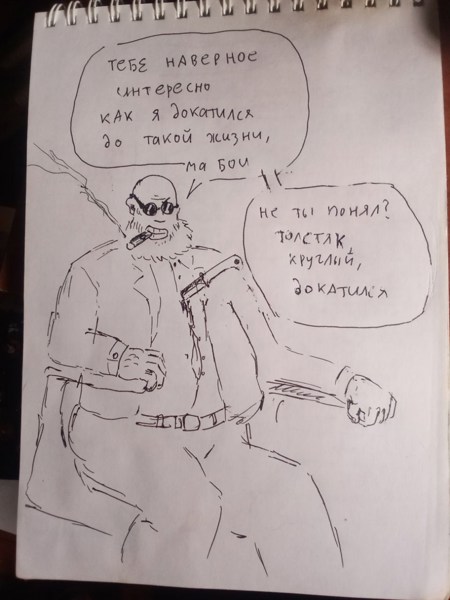 ТЕБЕ НАВЕРНОЕ
интересно
КАК Я ДОКАТИЛСЯ
ДО ТАКОЙ ЖИЗНИ,
МА БОИ
НЕ ТЫ ПОНЯЛ?
ТОЛСТЯК,
КРУГЛЫЙ,
ДОКАТИЛСЯ